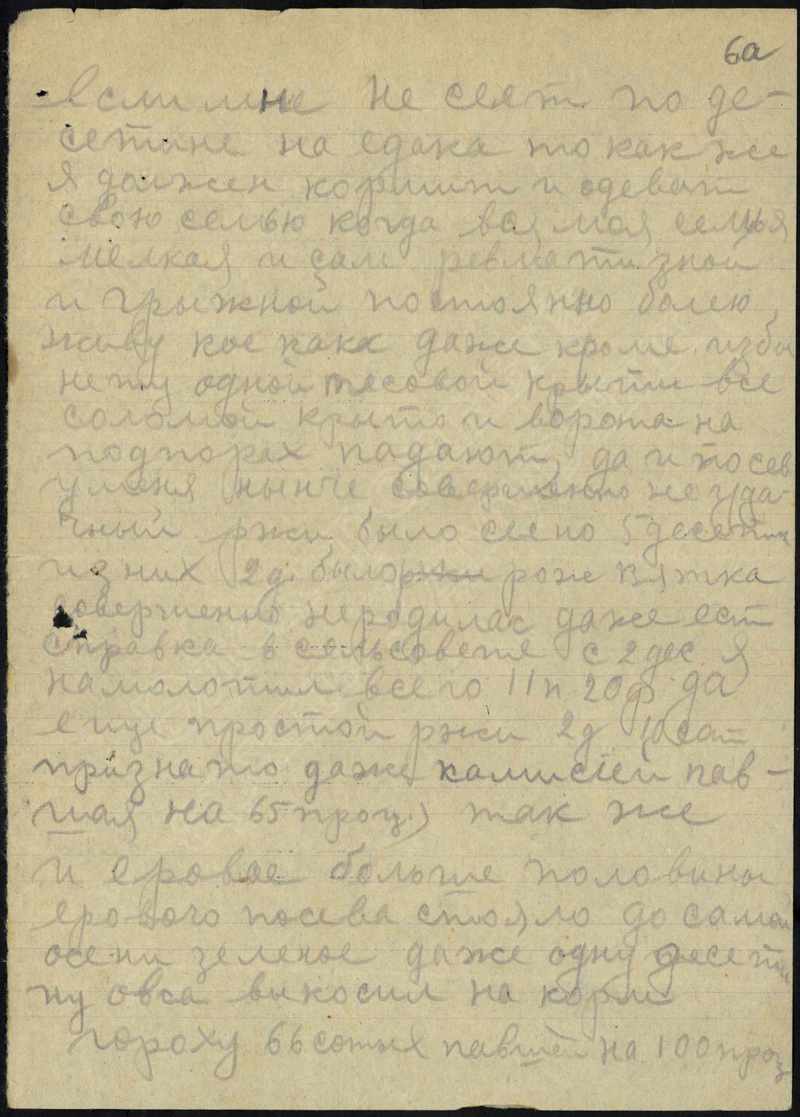 6а
Если мне не сеят по де-
сетине на едака то как же
я должен кормит и одеват
свою семью когда вся моя семья
мелкая и сам ревматизной
и грыжной постоянно болею,
живу кое кака даже кроме избы
нету одной тесовой крыти все
соломой крыто и ворота на
подпорах падают, да и посев
у меня нынче совершенно неуда-
чный ржи было сеено 5 десетин
из них 2 д. было ржи рож вятка
совершенно неродилас даже ест
справка в сельсовете с 2 дес я
намолотил всего 11 п 20 ф да
еще простой ржи 2 д сот
признато даже камисией пав-
шая на 65 проц.) так же
и еровое больше половины
ерового посева стояло до самой
осени зеленое даже одну десети
ну овса выкосил на корм
гороху 66 сотых павшей на 100 проц